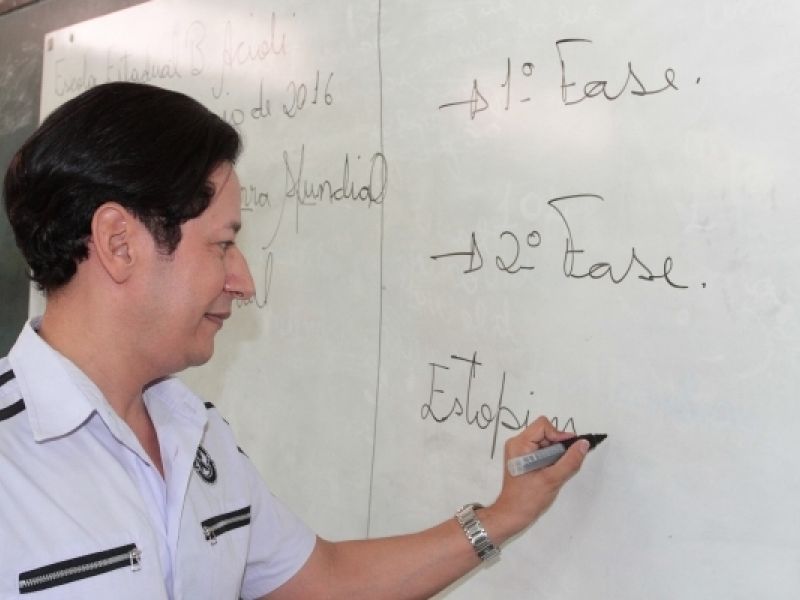 Escola Estadual B. Acioli
de 2016
Mundial
→ 1º Fase.
→ 2º Fase.
Estopim